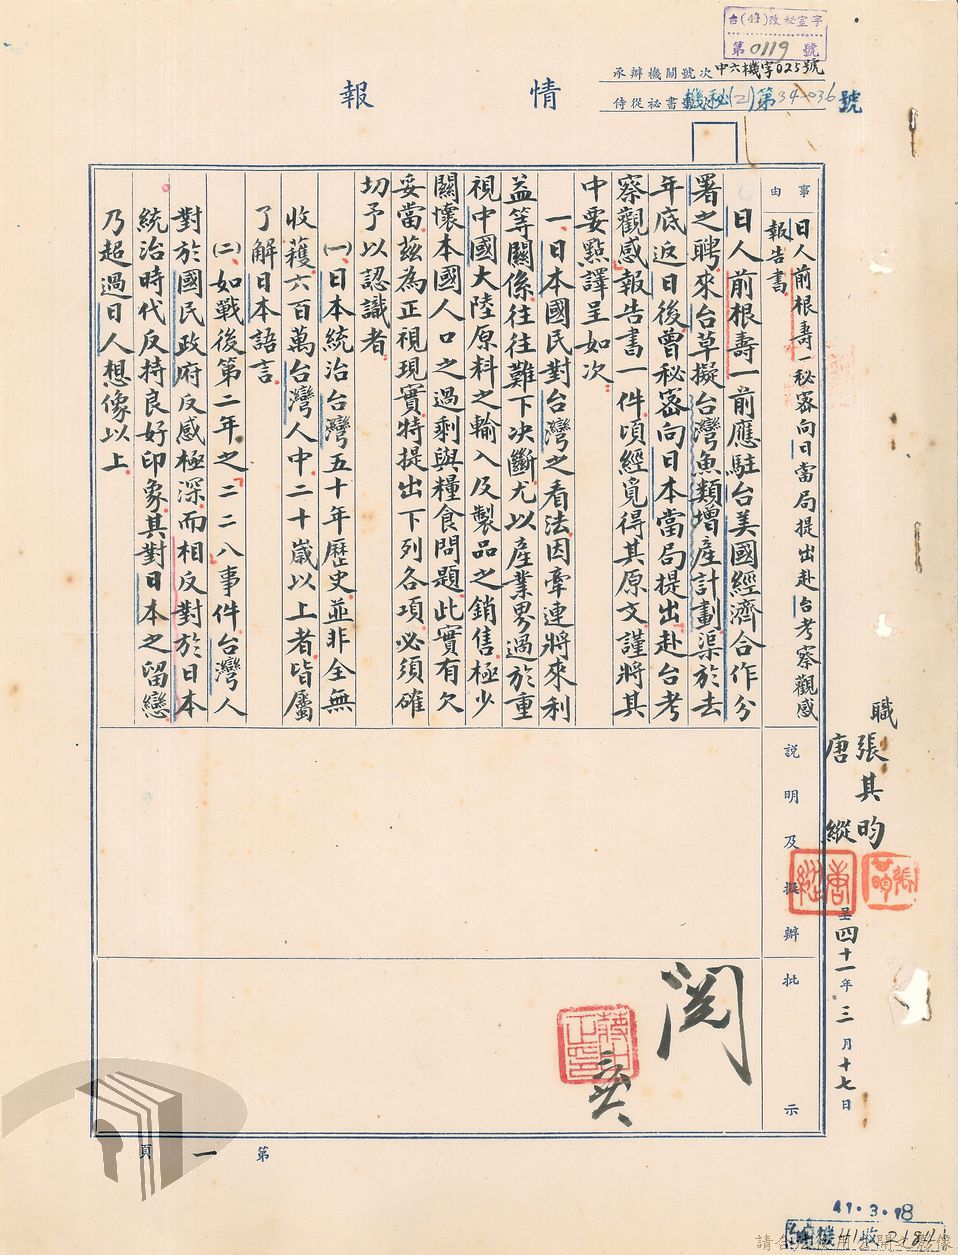 台(41)改秘室字
第0119號
承辦機關號次中六機字025號
侍從祕書號次機秘(2)第34-036號
情報
職張其昀
唐縱
呈四十一年三月十七日
事由
日人前根壽一秘密向日當局提出赴台考察觀感
報告書
日人前根壽一前應駐台美國經濟合作分
署之聘來台草擬台灣魚類增產計劃渠於去
年底返日後曾秘密向日本當局提出「赴台考
察觀感」報告書一件頃經覓得其原文謹將其
中要點譯呈如次:
一、日本國民對台灣之看法因牽連將來利
益等關係往往難下決斷尤以產業界過於重
視中國大陸原料之輸入及製品之銷售極少
關懷本國人口之過剩與糧食問題此實有欠
妥當茲為正視現實特提出下列各項必須確
切予以認識者
(一)日本統治台灣五十年歷史並非全無
收穫六百萬台灣人中二十歲以上者皆屬
了解日本語言
(二)如戰後第二年之「二二八」事件台灣人
對於國民政府反感極深而相反對於日本
統治時代反持良好印象其對日本之留戀
乃超過日人想像以上
說明及擬辦
批示
閱
蔣中正印
第一頁
41.3.18